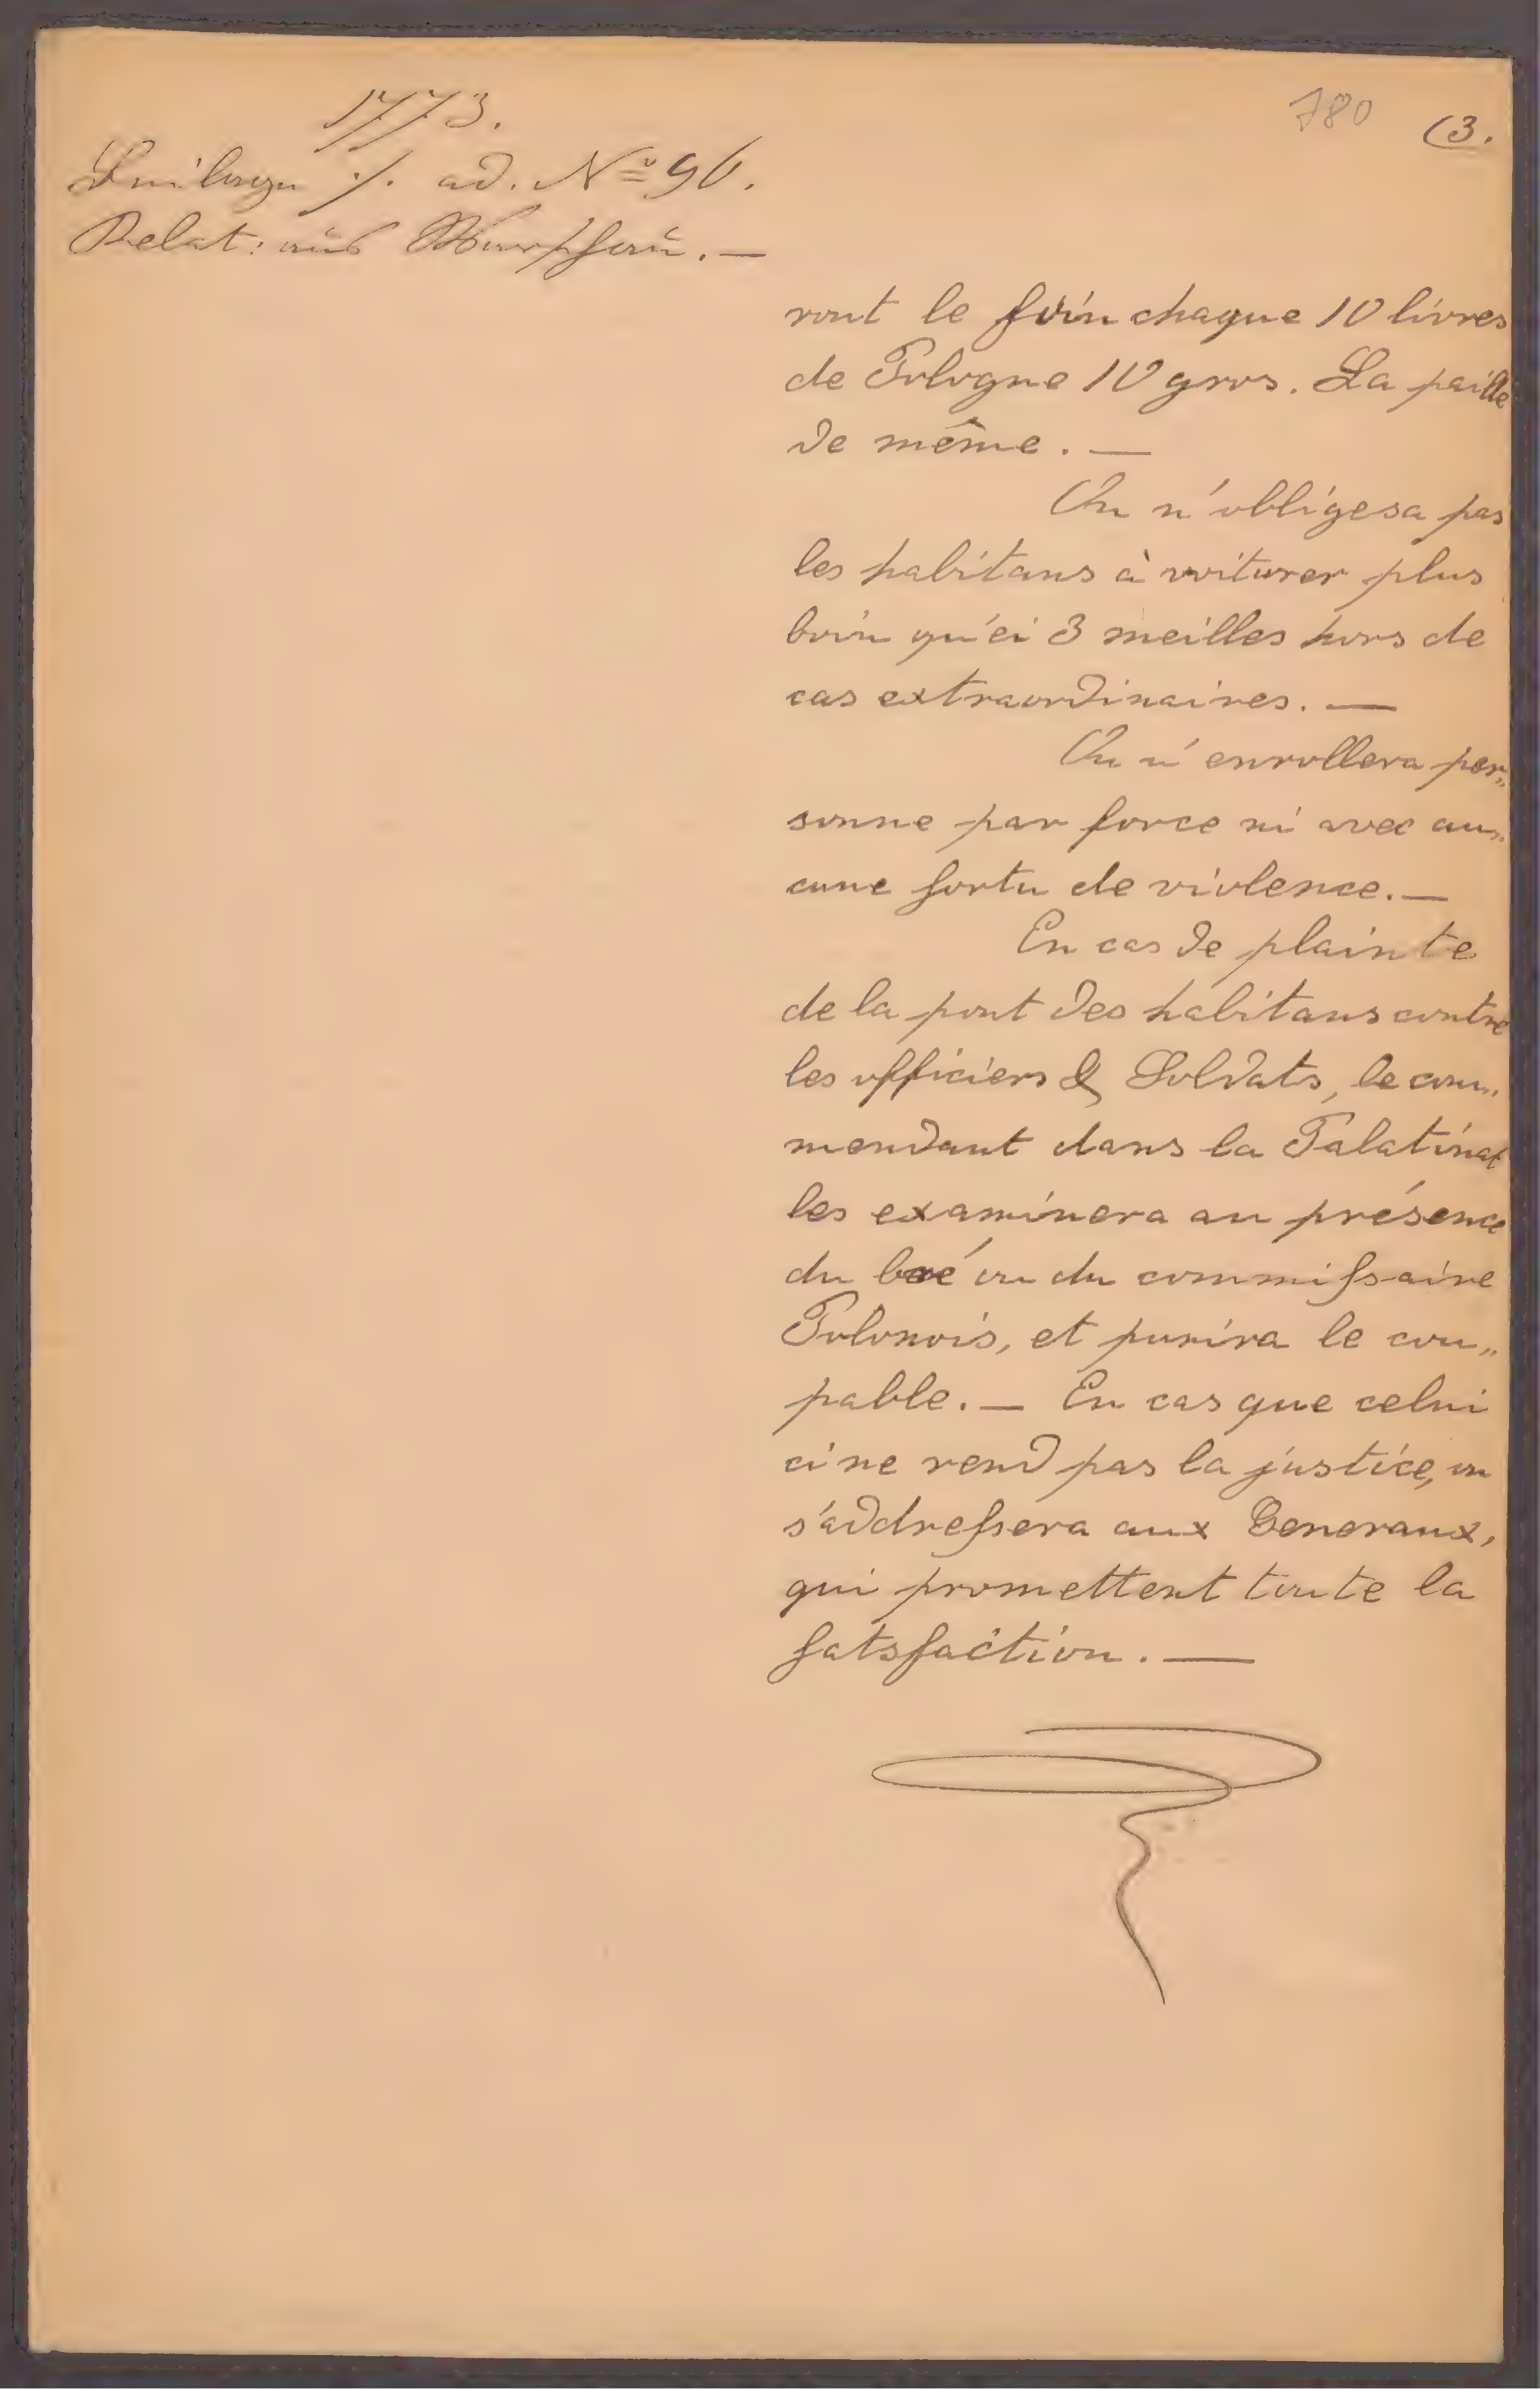 1773.
780 (3.
Beilage ·/. ad. No 96.
Relat: aus Warschau. —
ront le foin chaque 10 livres
de Pologne 10 gros. La paille
de même. —
On n'obligesa pas
les habitans à voiturer plus
loin qu'ei 3 meilles hors de
cas extraordinaires. —
On n'enrollera per„
sonne par force ni avec au„
cune sortu de violence. —
En cas de plainte
de la pout des habitans contre
les officiers & Soldats, le com„
mendant dans la Palatinat
les examinera au présence
du ou du commissaire
Polonois, et punira le cou„
pable. — En cas que celui
ci ne rend pas la justice, on
s'addressera aux Generaux,
qui promettent toute la
satsfaction. —